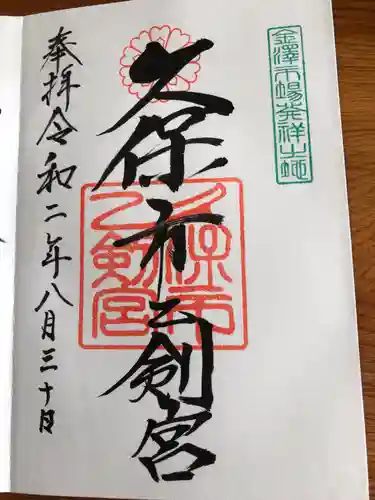 金澤市場発祥之地
久保市乙剣宮
久保市
乙剣宮
奉拝令和二年八月三十日